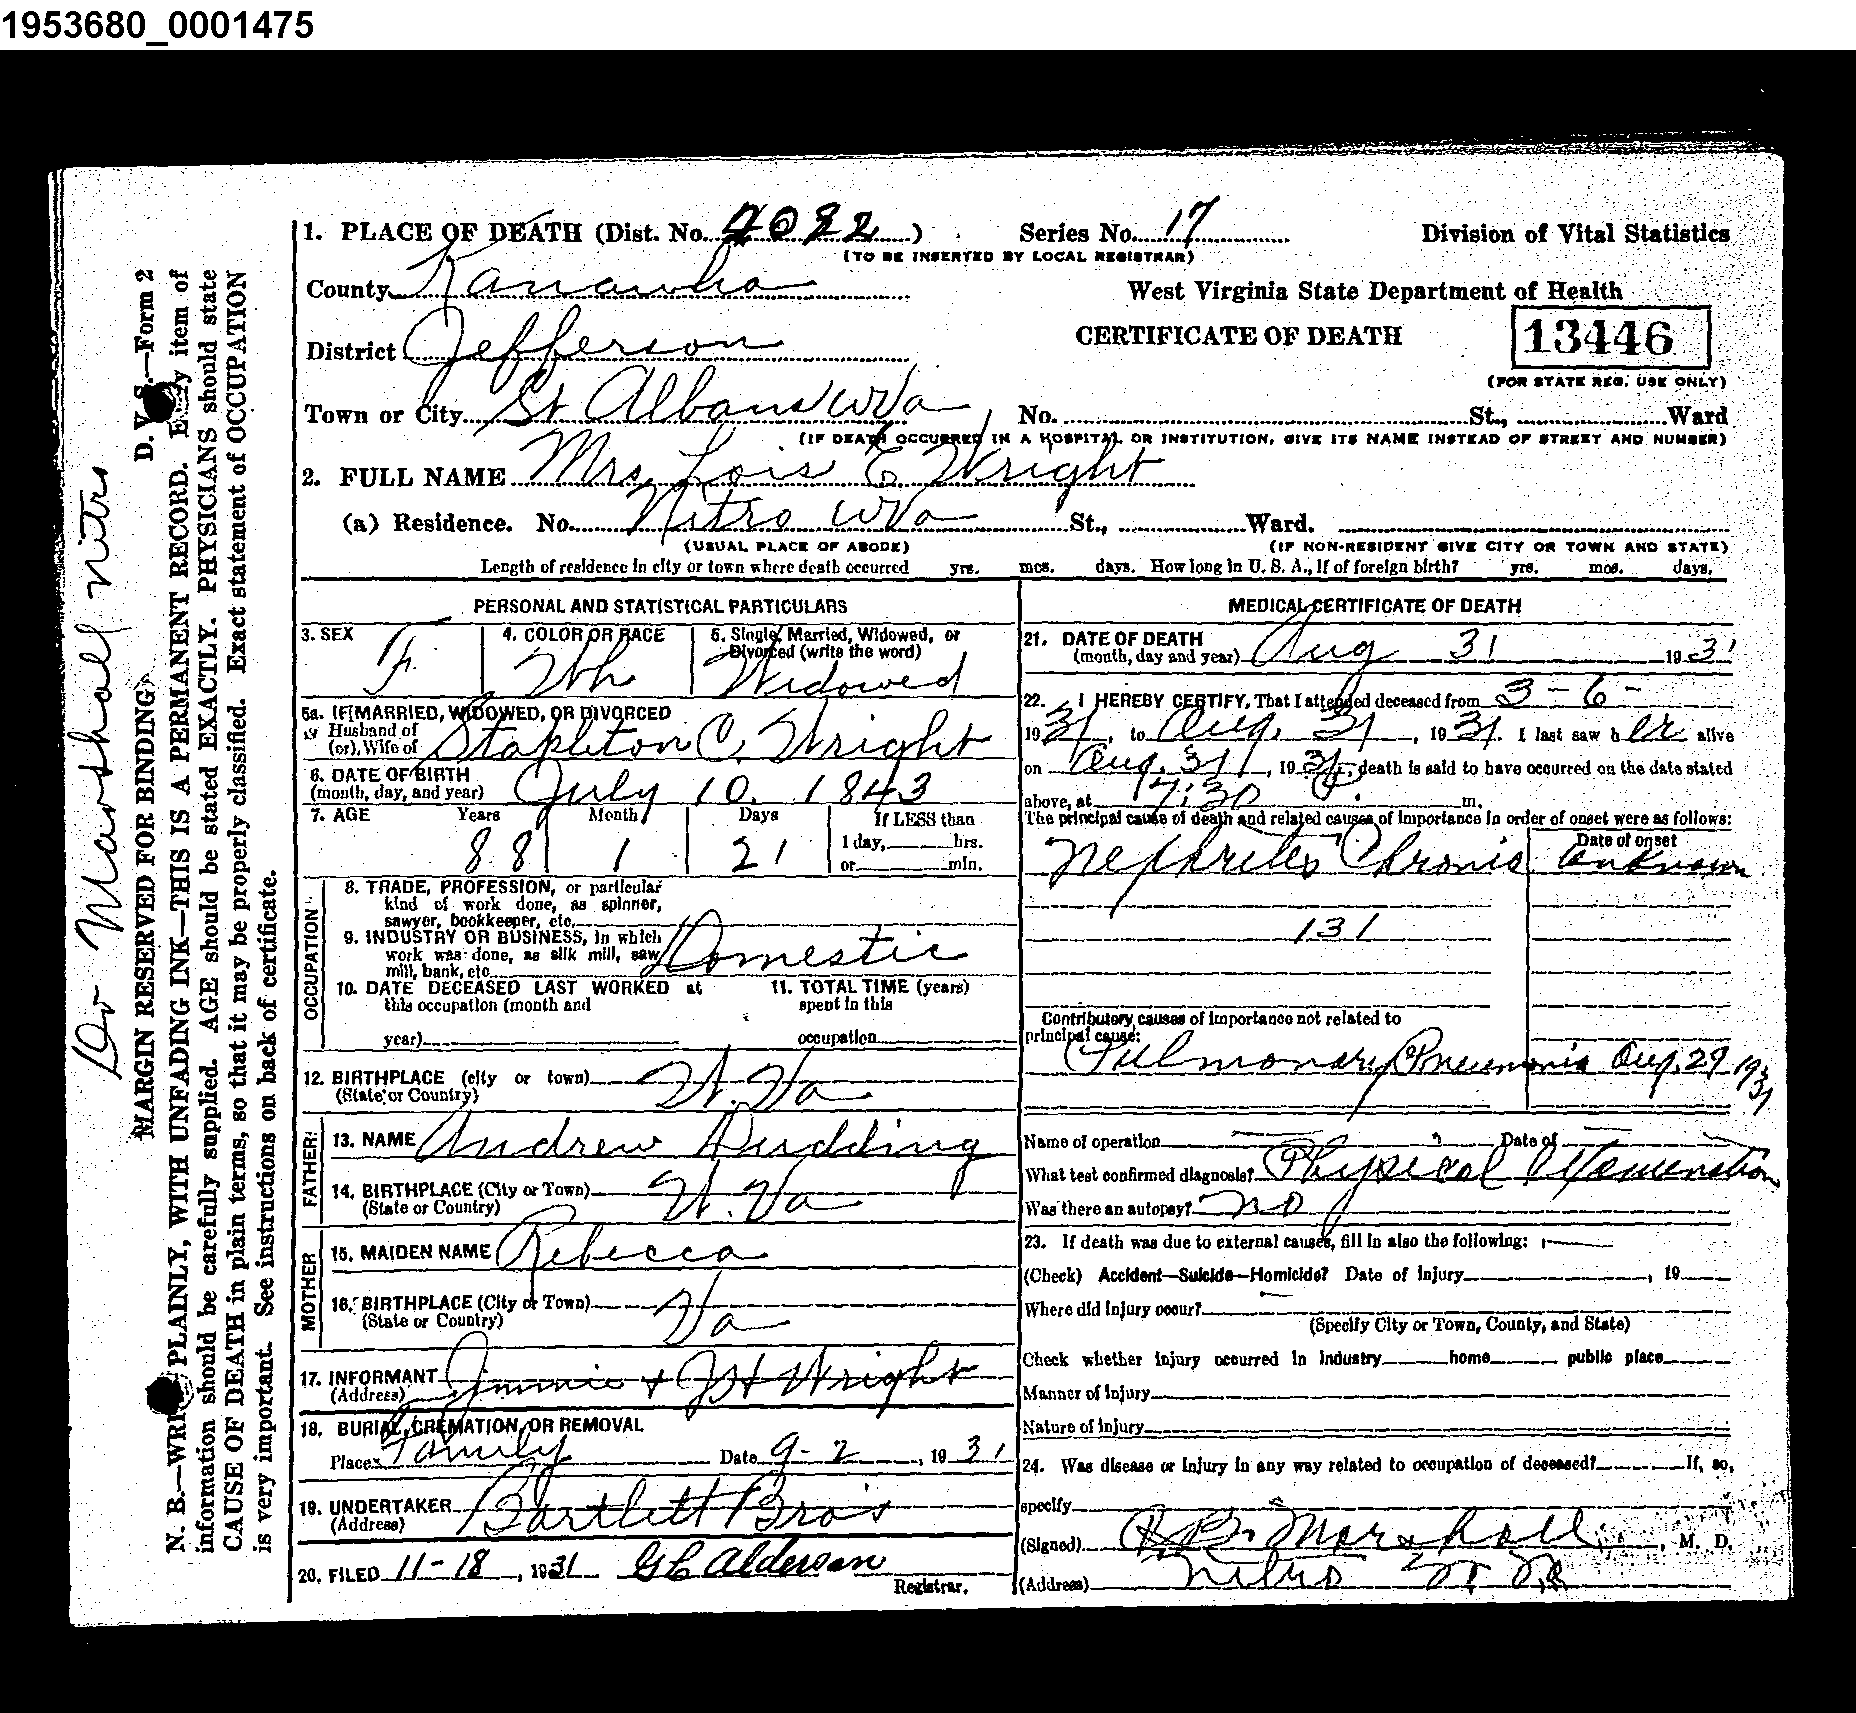 1953680_0001475
1. PLACE OF DEATH (Dist. No. 2022) Series No. 17 Division of Vital Statistics
(TO BE INSERTED BY LOCAL REGISTRAR)
County Kanawha West Virginia State Department of Health
District Jefferson CERTIFICATE OF DEATH 13446
(FOR STATE REG. USE ONLY)
Town or City St Albans W Va No. St., Ward
(IF DEATH OCCURRED IN A HOSPITAL OR INSTITUTION, GIVE ITS NAME INSTEAD OF STREET AND NUMBER)
2. FULL NAME Mrs Lois E Wright
(a) Residence. No. Nitro W Va St., Ward.
(USUAL PLACE OF ABODE) (IF NON-RESIDENT GIVE CITY OR TOWN AND STATE)
Length of residence in city or town where death occurred yrs. mos. days. How long in U. S. A., if of foreign birth? yrs. mos. days.
PERSONAL AND STATISTICAL PARTICULARS
3. SEX F
4. COLOR OR RACE Wh
5. Single, Married, Widowed, or
Divorced (write the word)
Widowed
5a. IF MARRIED, WIDOWED, OR DIVORCED
Husband of
(or) Wife of Stapleton C. Wright
6. DATE OF BIRTH
(month, day, and year) July 10. 1843
7. AGE Years Month Days If LESS than
88 1 21 1 day, hrs.
or min.
OCCUPATION
8. TRADE, PROFESSION, or particular
kind of work done, as spinner,
sawyer, bookkeeper, etc.
9. INDUSTRY OR BUSINESS, in which
work was done, as silk mill, saw
mill, bank, etc. Domestic
10. DATE DECEASED LAST WORKED at
this occupation (month and
year)
11. TOTAL TIME (years)
spent in this
occupation
12. BIRTHPLACE (city or town) W. Va
(State or Country)
FATHER
13. NAME Andrew Dudding
14. BIRTHPLACE (City or Town) W. Va
(State or Country)
MOTHER
15. MAIDEN NAME Rebecca
16. BIRTHPLACE (City or Town) Va
(State or Country)
17. INFORMANT Jimmie + J H Wright
(Address)
18. BURIAL, CREMATION, OR REMOVAL
Place Family Date 9-2, 1931
19. UNDERTAKER Bartlett Bro's
(Address)
20. FILED 11-18, 1931 G C Alderson
Registrar.
MEDICAL CERTIFICATE OF DEATH
21. DATE OF DEATH
(month, day and year) Aug 31 1931
22. I HEREBY CERTIFY, That I attended deceased from 3-6-
1931, to Aug. 31, 1931. I last saw her alive
on Aug. 31, 1931, death is said to have occurred on the date stated
above, at 7:30 P. m.
The principal cause of death and related causes of importance in order of onset were as follows:
Date of onset
Nephrites Chronic Unknown
131
Contributory causes of importance not related to
principal cause:
Pulmonary Pneumonia Aug. 29 1931
Name of operation Date of
What test confirmed diagnosis? Physical Examination
Was there an autopsy? no
23. If death was due to external causes, fill in also the following:
(Check) Accident—Suicide—Homicide? Date of injury , 19
Where did injury occur?
(Specify City or Town, County, and State)
Check whether injury occurred in industry home public place
Manner of injury
Nature of injury
24. Was disease or injury in any way related to occupation of deceased? If, so,
specify
(Signed) Marshall, M. D.
(Address) Nitro W. Va
D. V. S.—Form 2
Dr Marshall nitro
MARGIN RESERVED FOR BINDING
N. B.—WRITE PLAINLY, WITH UNFADING INK—THIS IS A PERMANENT RECORD. Every item of
information should be carefully supplied. AGE should be stated EXACTLY. PHYSICIANS should state
CAUSE OF DEATH in plain terms, so that it may be properly classified. Exact statement of OCCUPATION
is very important. See instructions on back of certificate.